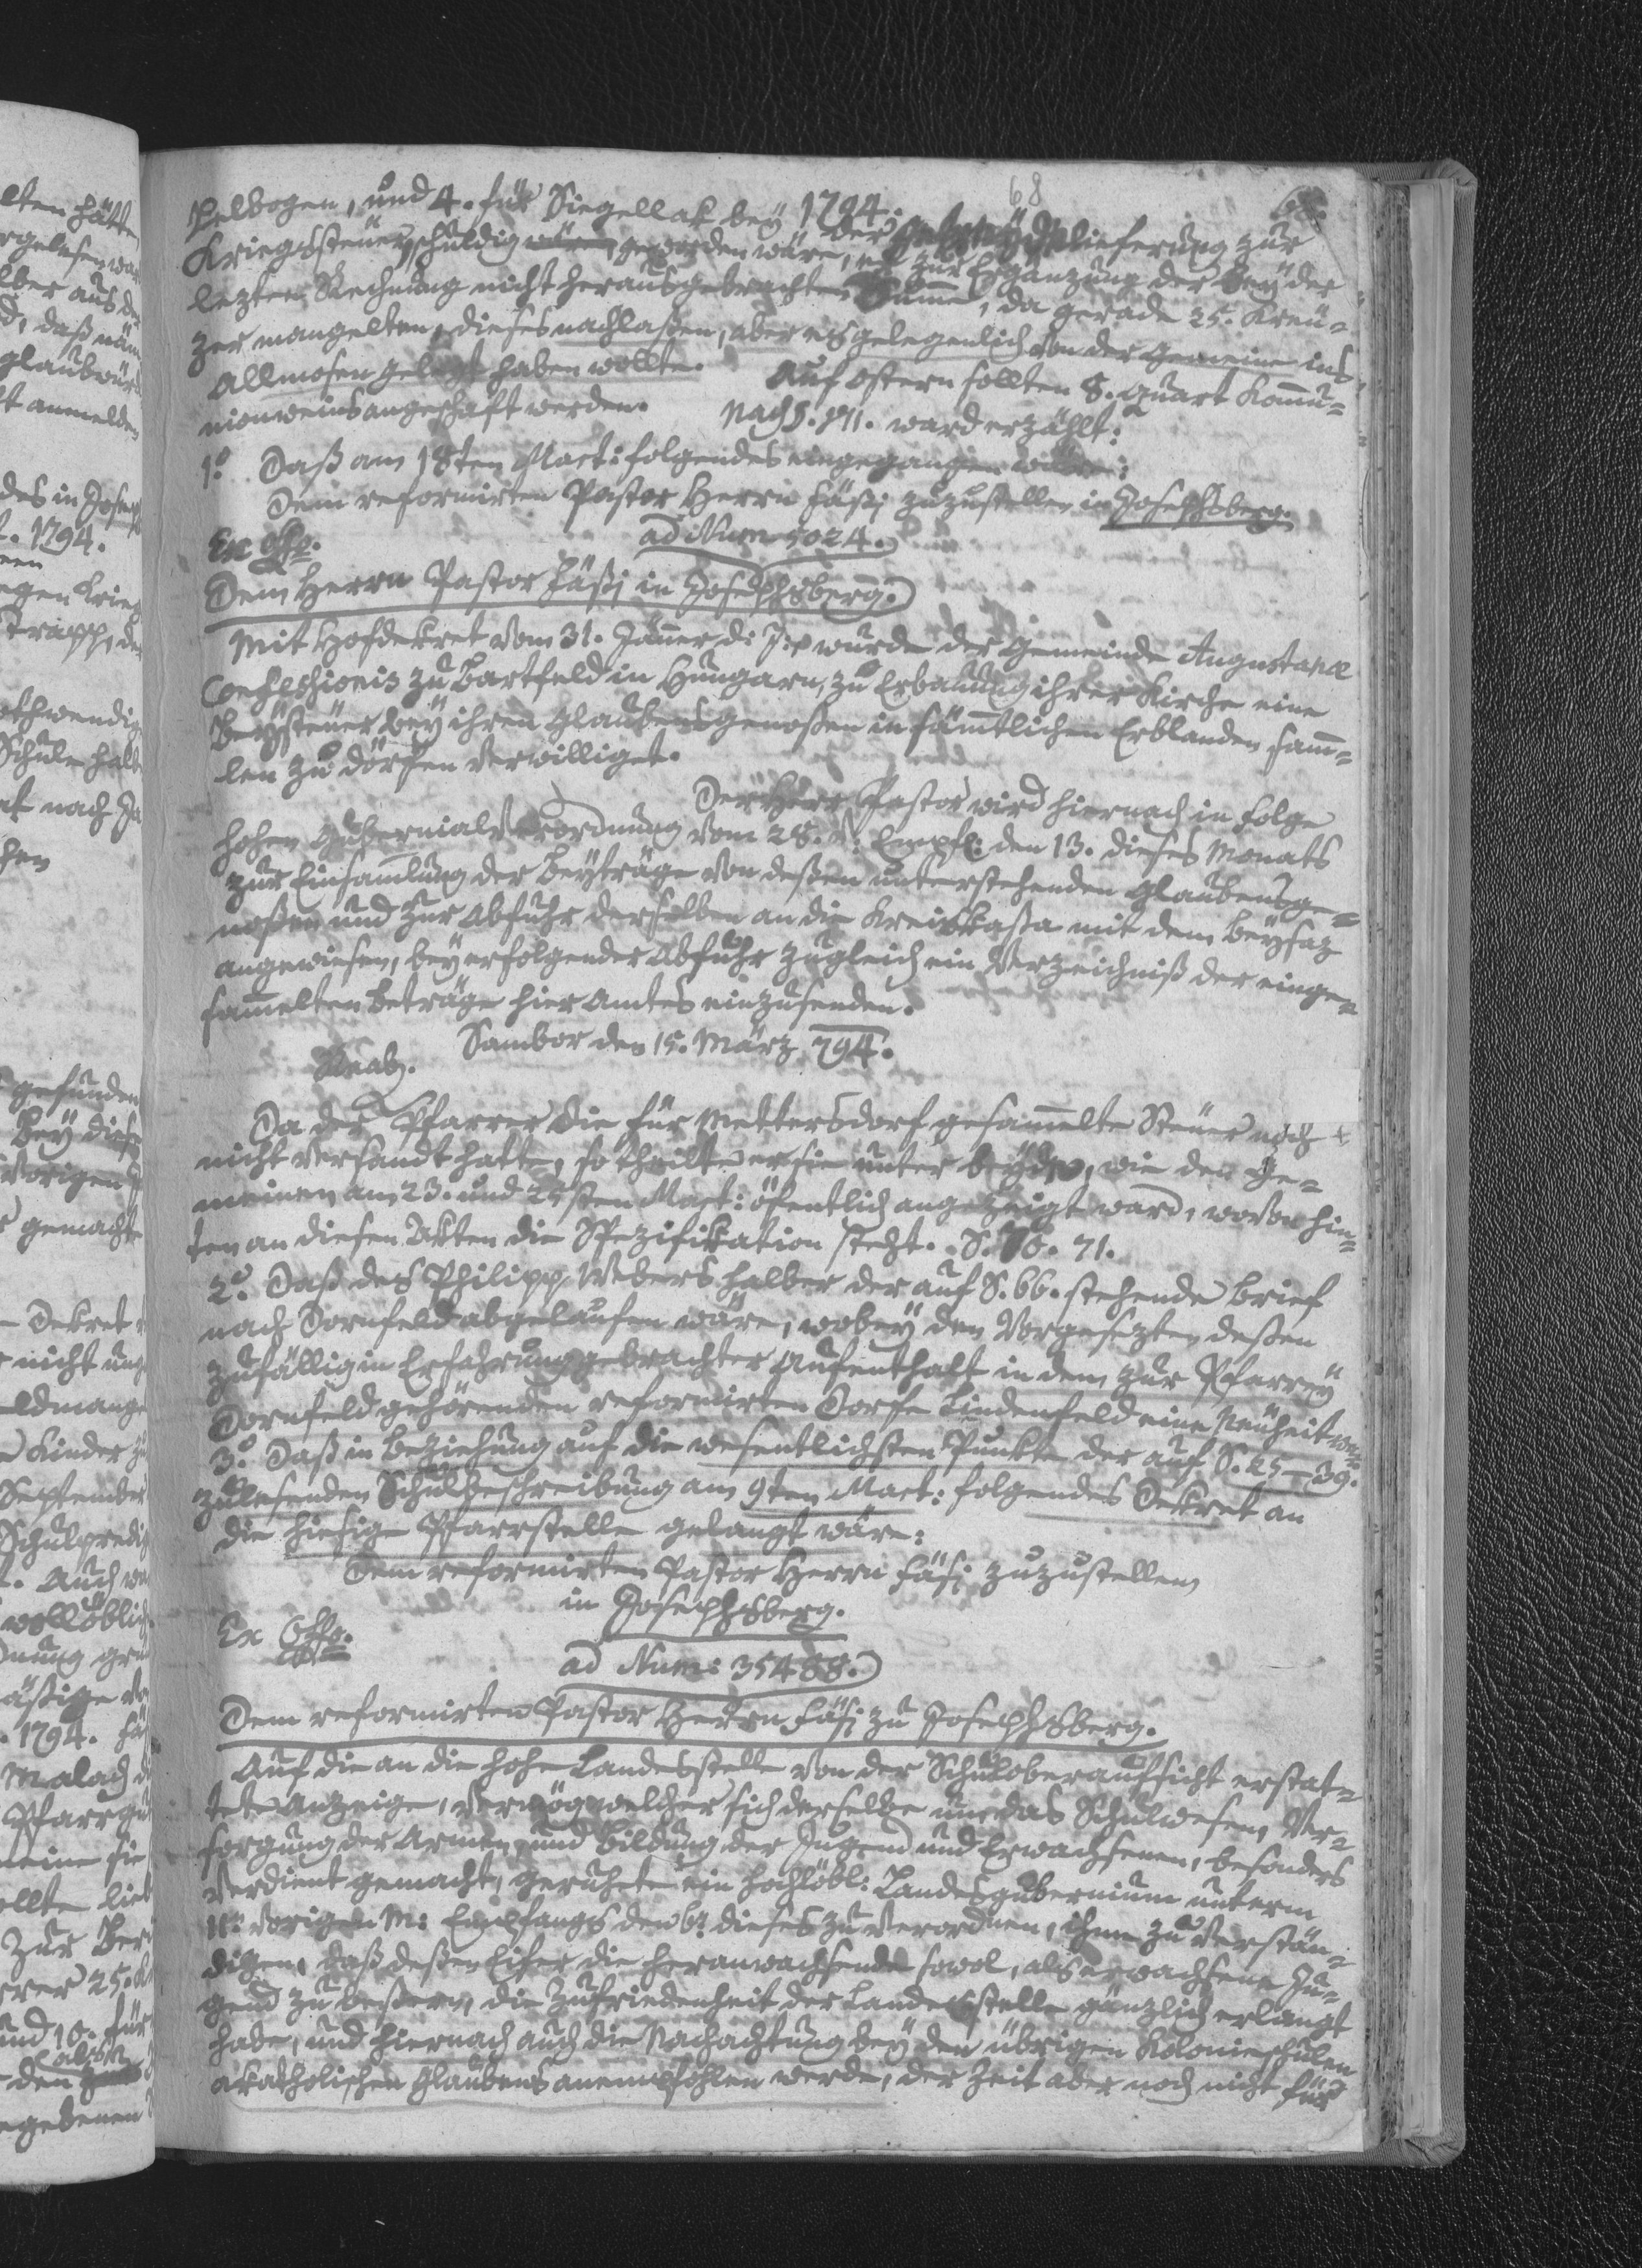 68
68.
stelbogen, und 4. für Siegellak bey 1794. der Getreydelieferung zur
Kriegssteuer schuldig wären geworden wäre, zur Ergänzung der bey der
lezten Rechnung nicht herausgebrachten Summe, da gerade 25. Kreü-
zer mangelten, dieses nachlaßen, aber es gelegenlich von der Gemeine ins
Allmosen gelegt haben wollte. Auf Ostern sollten 8. Quart Kommu-
nionweins angeschaft werden. Nach S. 711. ward erzählt:
1.° Daß am 18ten Mart: folgendes eingegangen wäre:
Dem reformirten Pastor Herrn Fäßj zuzustellen in Josephsberg.
Ex Offo.
ad Num. 5024.
Dem Herrn Pastor Fäßj in Josephsberg.
Mit Hofdekret vom 31. Jänner d: J: wurde der Gemeinde Augustanæ
Confessionis zu Bartfeld in Hungarn, zu Erbauung ihrer Kirche eine
Beysteuer bey ihren Glaubensgenoßen in sämmtlichen Erblanden samm-
len zu dörfen verwilliget.
Der Herr Pastor wird hiernach in Folge
hohen Gubernialverordnung vom 28. v. Empf: den 13. dieses Monats
zur Einsammlung der Beyträge von deßen unterstehenden Glaubensge-
noßen und zur Abfuhr derselben an die Kreiskaßa mit dem Beysaz
angewiesen, bey erfolgender Abfuhr zugleich ein Verzeichniß der einge-
sammelten Beträge hier Amtes einzusenden.
Sambor den 15. März 794.
Da der Pfarrer die für Mettersdorf gesammelte Steuer noch +
nicht versandt hatte, so theilte er sie unter beyde, wie den Ge-
meinen am 23. und 25sten Mart: öfentlich angezeigt ward, wovon hin-
ten an diesen Akten die Spezifikation steht. S. 70. 71.
2.° Daß des Philipp Webers halber der auf S. 66. stehende Brief
nach Dornfeld abgelaufen wäre, wobey den Vorgesezten deßen
zufällig in Erfahrung gebrachter Aufenthalt in dem zur Pfarrey
Dornfeld gehörenden reformirten Dorfe Lindenfeld eine Neuheit war.
3.° Daß in Beziehung auf die wesentlichsten Punkte der auf S. 25-39.
zulesenden Schulbeschreibung am 9ten Mart: folgendes Dekret an
die hiesige Pfarrstelle gelangt wäre:
Dem reformirten Pastor Herrn Fäsj zuzustellen
in Josephsberg.
Ex Offo.
ad Num: 35488.
Dem reformirten Pastor Herrn Fäsj zu Josephsberg.
Auf die an die hohe Landesstelle von der Schuloberaufsicht erstat-
tete Anzeige, vermög welcher sich derselbe um das Schulwesen, Ver-
sorgung der Armen, und Bildung der Jugend und Erwachsenen, besonders
verdient gemacht, geruhete ein hochlöbl: Landesgubernium unterm
11. vorigen M: Empfangs den 6. dieses zu verordnen, ihme zu verstän-
digen, daß deßen Eifer die heranwachsende sowol, als erwachsene Ju-
gend zu beßern, die Zufriedenheit der Landesstelle gänzlich erlangt
habe, und hiernach auch die Nachachtung bey den übrigen Kolonieschulen
akatholischen Glaubens anempfohlen werde, der Zeit aber noch nicht für